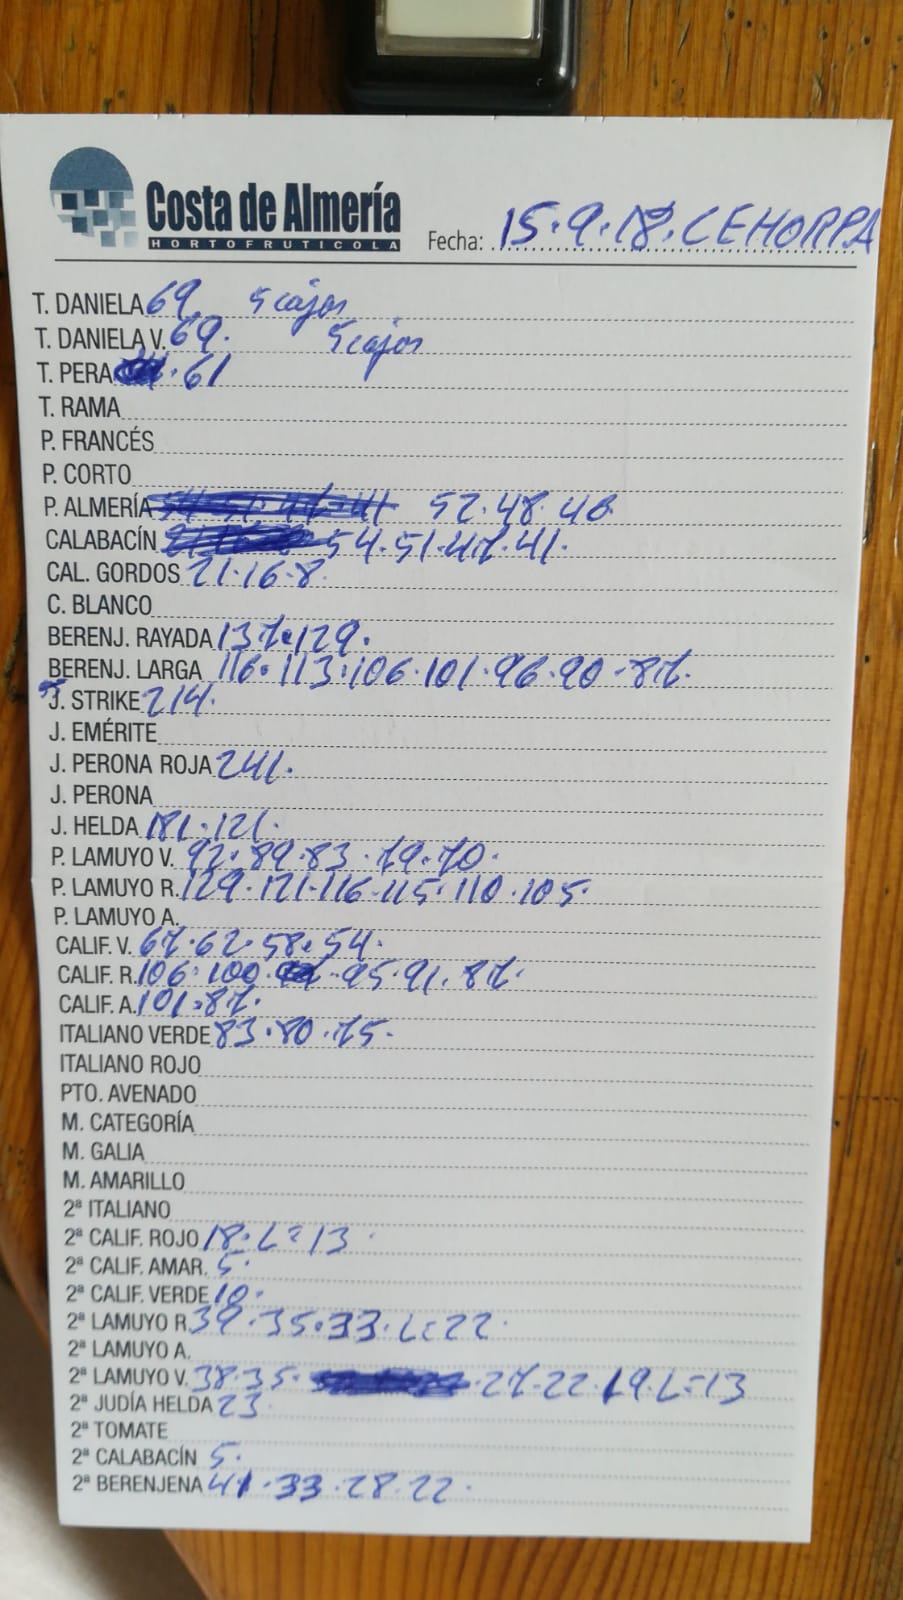 Costa de Almería
HORTOFRUTICOLA
Fecha: 15.9.18. CEHORPA
T. DANIELA 69. 5 cajas
T. DANIELA V. 69. 5 cajas
T. PERA . 61
T. RAMA
P. FRANCÉS
P. CORTO
P. ALMERÍA 54 51. 47. 41 52.48.46
CALABACÍN 54.51.47.41.
CAL. GORDOS 21.16.8.
C. BLANCO
BERENJ. RAYADA 137.129.
BERENJ. LARGA 116.113.106.101.96.90.87.
J. STRIKE 214.
J. EMÉRITE
J. PERONA ROJA 241.
J. PERONA
J. HELDA 181.121.
P. LAMUYO V. 92.89.83.79.70.
P. LAMUYO R. 129.121.116.115.110.105.
P. LAMUYO A.
CALIF. V. 67.62.58.54.
CALIF. R. 106.100. .95.91.87.
CALIF. A. 101.87.
ITALIANO VERDE 83.80.75.
ITALIANO ROJO
PTO. AVENADO
M. CATEGORÍA
M. GALIA
M. AMARILLO
2ª ITALIANO
2ª CALIF. ROJO 18. L=13.
2ª CALIF. AMAR. 5.
2ª CALIF. VERDE 10.
2ª LAMUYO R. 39.35.33. L=22.
2ª LAMUYO A.
2ª LAMUYO V. 38.35. .27.22.19. L=13
2ª JUDÍA HELDA 23.
2ª TOMATE
2ª CALABACÍN 5.
2ª BERENJENA 41.33.28.22.